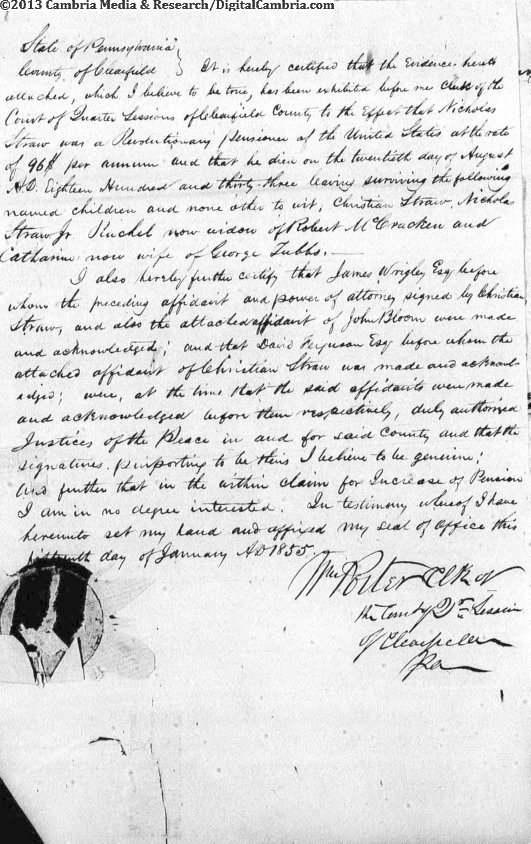 ©2013 Cambria Media & Research/DigitalCambria.com
State of Pennsylvania
County of Clearfield } It is hereby certified that the Evidences hereto
attached, which I believe to be true, has been exhibited before me Clerk of the
Court of Quarter Sessions of Clearfield County to the Effect that Nicholas
Straw was a Revolutionary pensioner of the United States at the rate
of 96$ per annum and that he died on the twentieth day of August
A.D. Eighteen Hundred and thirty-three leaving surviving the following
named children and none other to wit, Christian Straw, Nicholas
Straw Jr. Rachel now widow of Robert McCracken and
Catharine now wife of George Tubbs.
I also hereby further certify that James Wrigley Esq before
whom the preceding affidavit and power of attorney signed by Christian
Straw, and also the attached affidavit of John Bloom were made
and acknowledged; and that David Ferguson Esq before whom the
attached affidavit of Christian Straw was made and acknowl-
edged; were, at the time that the said affidavits were made
and acknowledged before them respectively, duly authorised
Justices of the Peace in and for said County and that the
signatures purporting to be theirs I believe to be genuine;
And further that in the within claim for Increase of Pension
I am in no degree interested. In testimony whereof I have
hereunto set my hand and affixed my seal of Office this
fifteenth day of January AD 1855.
Wm Porter Clk of
the Court of Qr. Session
of Clearfield
Pa